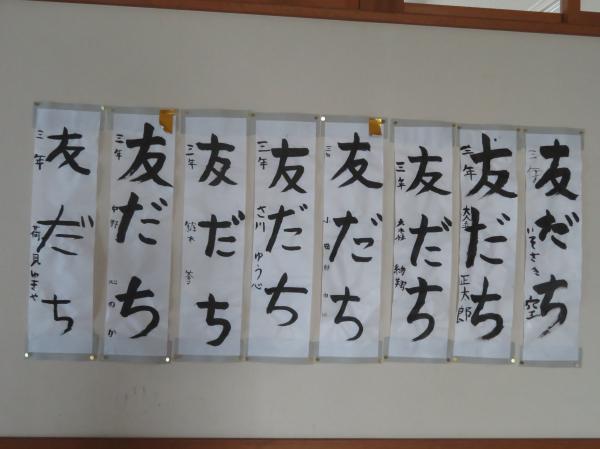 友だち
三年 いそざき 空
友だち
三年 正太郎
友だち
三年
友だち
友だち
三年 さ川 ゆう心
友だち
三年
友だち
三年 心のか
友だち
三年 荷見ゆきや